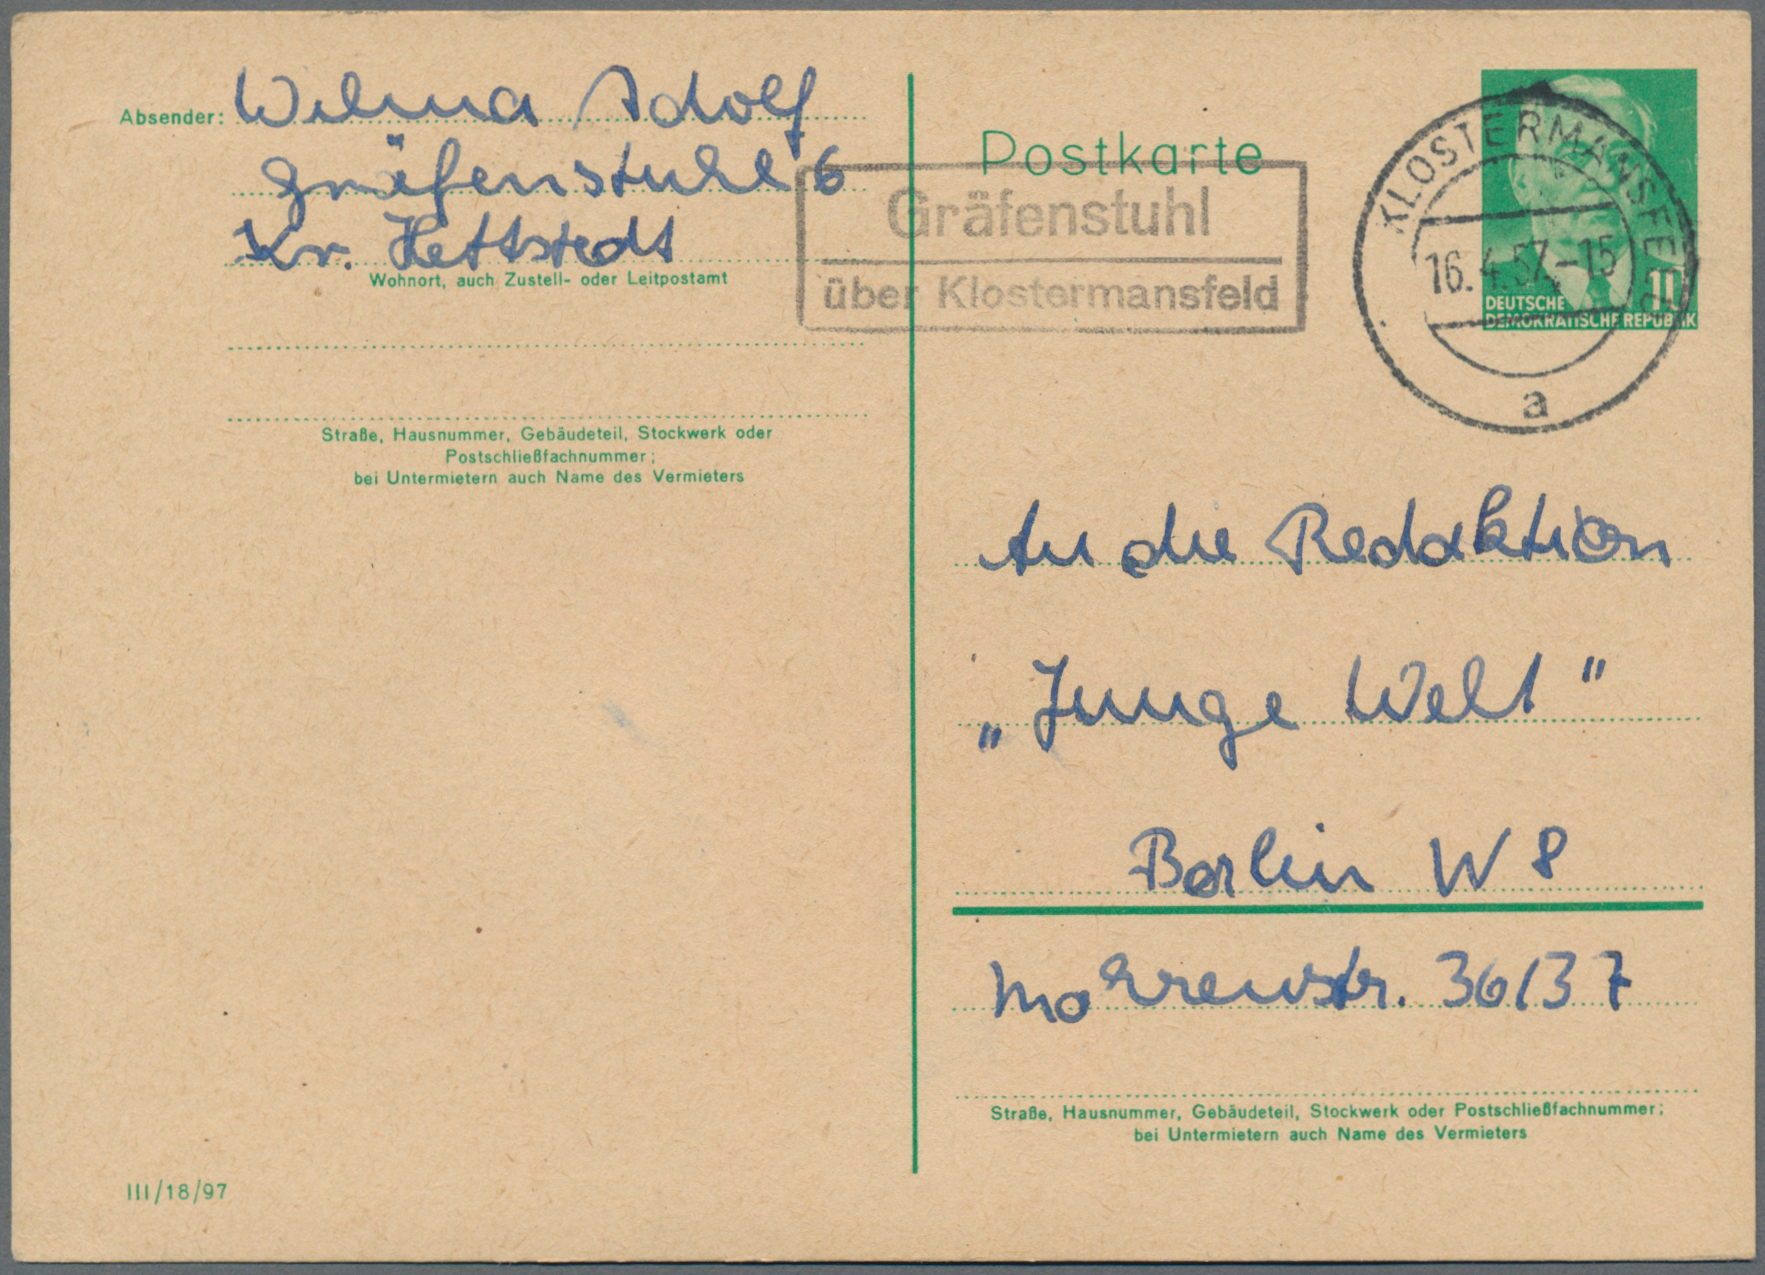 Absender: Wilma Adolf
Gräfenstuhl 6
Kr. Hettstedt
Wohnort, auch Zustell- oder Leitpostamt
Straße, Hausnummer, Gebäudeteil, Stockwerk oder
Postschließfachnummer;
bei Untermietern auch Name des Vermieters
III/18/97
Postkarte
Gräfenstuhl
über Klostermansfeld
KLOSTERMANSFELD
16.4.57.-15
a
11
DEUTSCHE
DEMOKRATISCHE REPUBLIK
An die Redaktion
„Junge Welt"
Berlin W 8
Mohrenstr. 36/37
Straße, Hausnummer, Gebäudeteil, Stockwerk oder Postschließfachnummer;
bei Untermietern auch Name des Vermieters